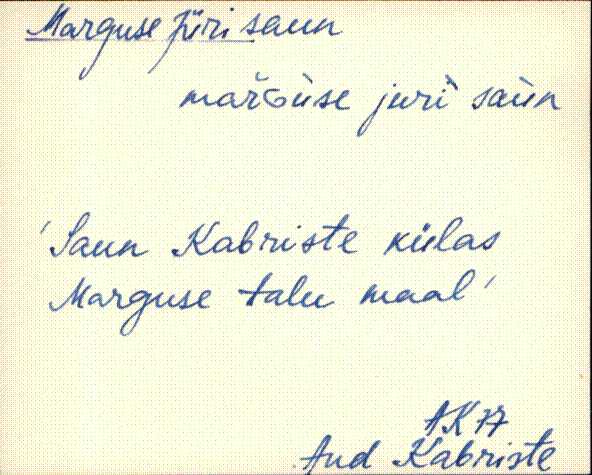 Marguse Jüri saun
marɢuse juri saun
'Saun Kabriste külas
Marguse talu maal'
AK 77
And Kabriste